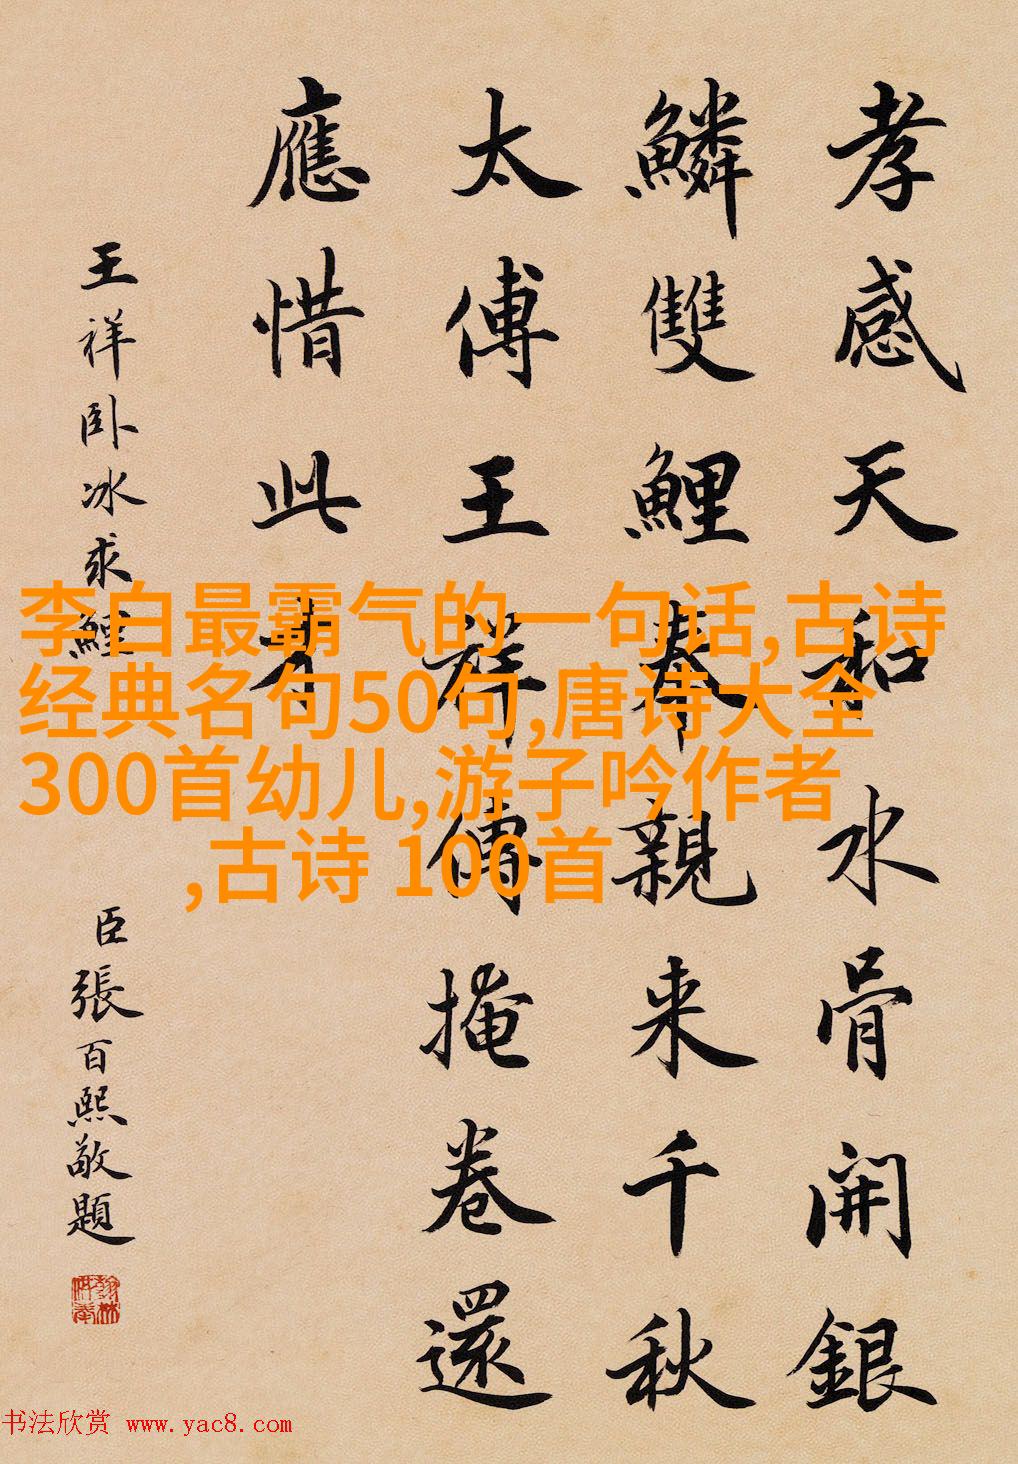 孝感天和水骨開銀
鱗雙鯉奉親来千秋
太傅王祥傳掩卷還
應惜此才
王祥卧冰求鯉
臣張百熙敬題
李白最霸气的一句话,古诗
经典名句50句,唐诗大全
300首幼儿,游子吟作者
,古诗 100首
书法欣赏 www.yac8.com